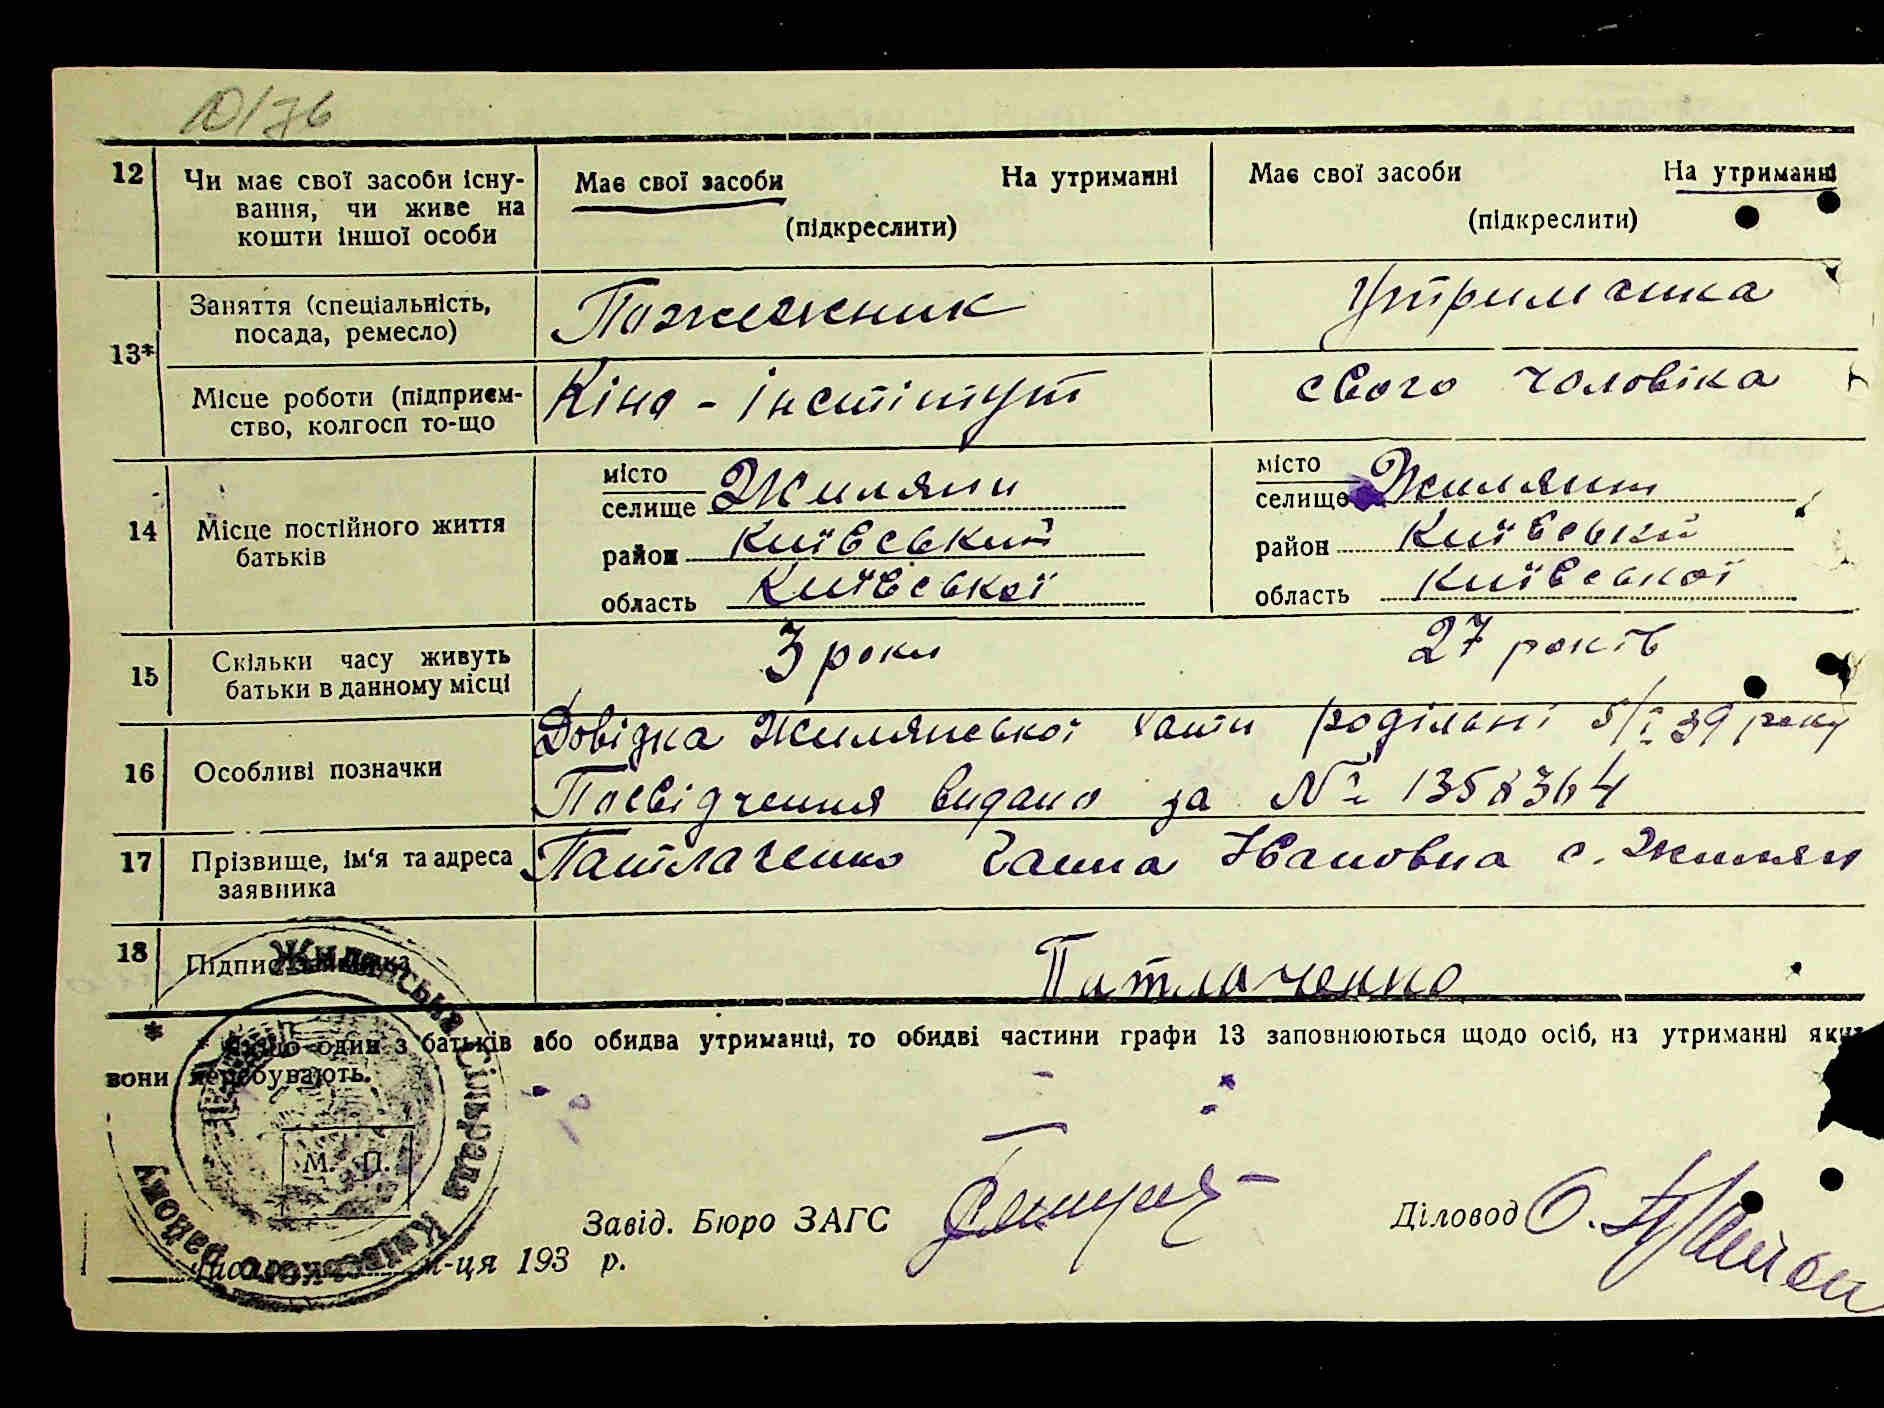 12 Чи має свої засоби існу- Має свої засоби На утриманні Має свої засоби На утриманні
вання, чи живе на
кошти іншої особи (підкреслити) (підкреслити)
13* Заняття (спеціальність, Пожежник Утриманка
посада, ремесло)
Місце роботи (підприєм- Кіно - інстітут свого чоловіка
ство, колгосп то-що
14 Місце постійного життя місто місто
батьків селище Жиляни селище Жиляни
район Київський район Київський
область Київської область Київської
15 Скільки часу живуть 3 роки 27 років
батьки в данному місці
16 Особливі позначки Довідка Жилянської хати родільні 5/I 39 року
Посвідчення видано за № 1358364
17 Прізвище, ім'я та адреса Патлаченко Ганна Івановна с. Жиляни
заявника
18 Підпис Патлаченко
* Якщо один з батьків або обидва утриманці, то обидві частини графи 13 заповнюються щодо осіб, на утриманні яких
вони перебувають.
Жилянська сільрада Київського району
М. П.
Завід. Бюро ЗАГС Діловод
м-ця 193 р.